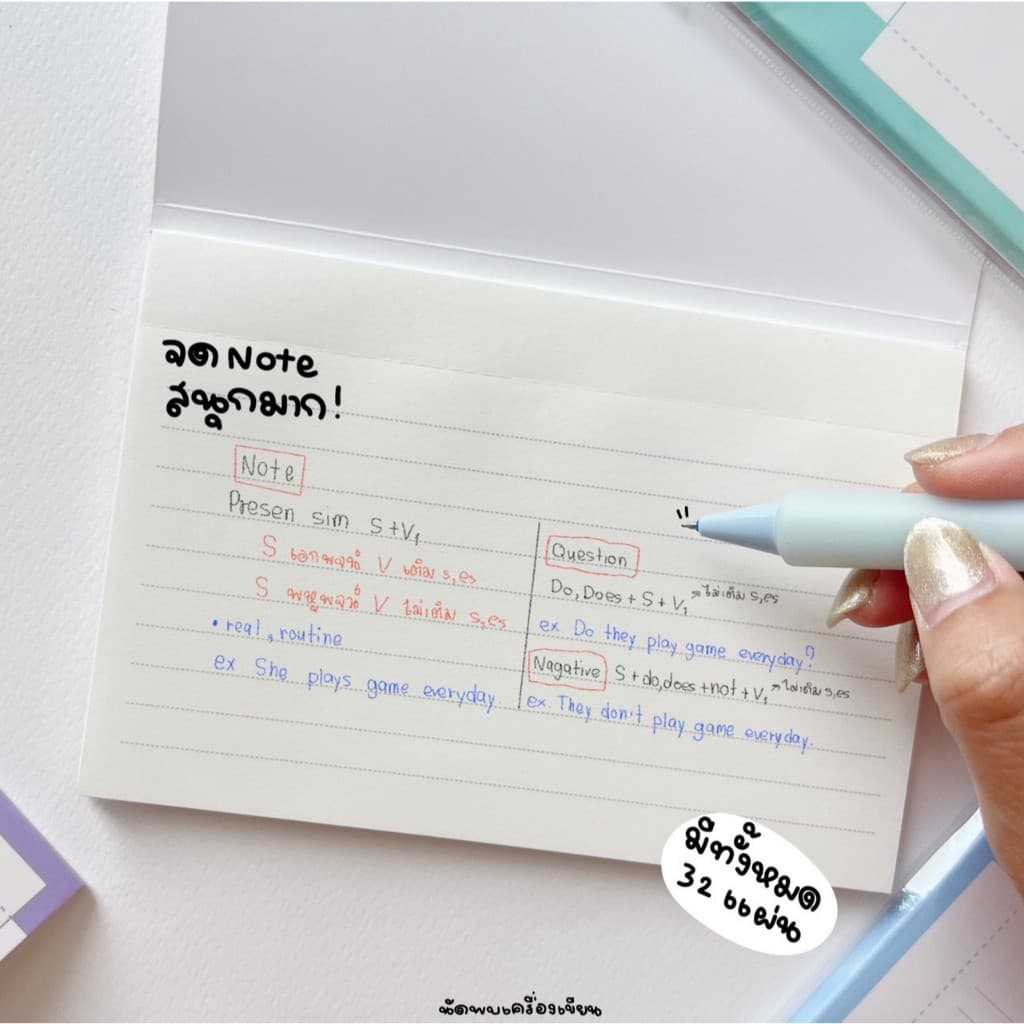 จด Note
สนุกมาก!
Note
Presen sim S+V1
S เอกพจน์ V เติม s,es
S พหูพจน์ V ไม่เติม s,es
• real, routine
ex She plays game everyday.
Question
Do, Does + S + V1 → ไม่เติม s,es
ex Do they play game everyday?
Nagative S + do, does + not + V1 → ไม่เติม s,es
ex. They don't play game everyday.
มีทั้งหมด
32 แผ่น
นัดพบเครื่องเขียน